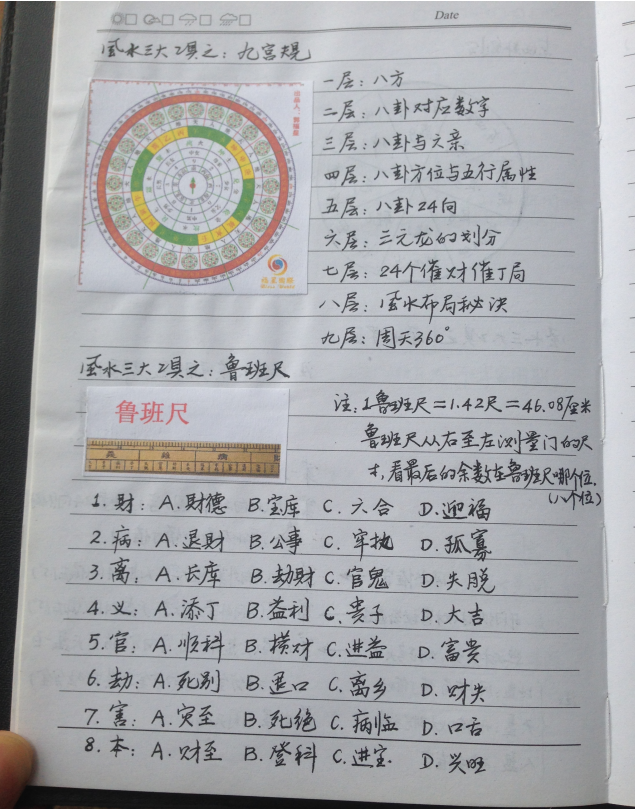 Date
风水三大工具之：九宫规
一层：八方
二层：八卦对应数字
三层：八卦与六亲
四层：八卦方位与五行属性
五层：八卦24向
六层：三元龙的划分
七层：24个催财催丁局
八层：风水布局秘诀
九层：周天360°
风水三大工具之：鲁班尺
鲁班尺
注：1鲁班尺=1.42尺=46.08厘米
鲁班尺从右至左测量门的尺
寸，看最后的余数在鲁班尺哪个位.
(八个位)
1.财：A.财德 B.宝库 C.六合 D.迎福
2.病：A.退财 B.公事 C.牢执 D.孤寡
3.离：A.长库 B.劫财 C.官鬼 D.失脱
4.义：A.添丁 B.益利 C.贵子 D.大吉
5.官：A.顺科 B.横财 C.进益 D.富贵
6.劫：A.死别 B.退口 C.离乡 D.财失
7.害：A.灾至 B.死绝 C.病临 D.口舌
8.本：A.财至 B.登科 C.进宝 D.兴旺